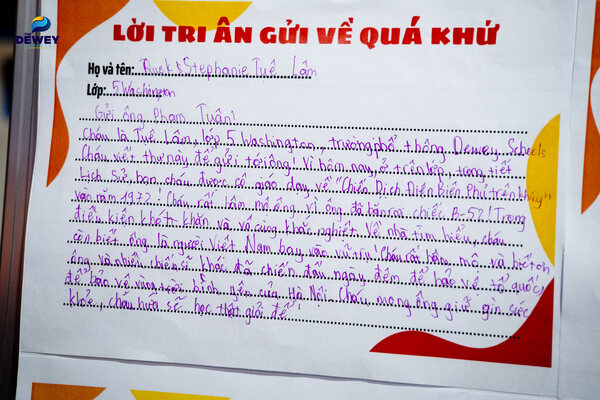 DEWEY
LỜI TRI ÂN GỬI VỀ QUÁ KHỨ
Họ và tên: Quek Stephanie Tuệ Lâm
Lớp: 5 Washington
Gửi ông Phạm Tuân!
Cháu là Tuệ Lâm, lớp 5 Washington, trường phổ thông Dewey Schools
Cháu viết thư này để gửi tới ông! Vì hôm nay, ở trên lớp, trong tiết
Lịch Sử, bọn cháu được cô giáo dạy về "Chiến Dịch Điện Biên Phủ trên không"
vào năm 1972! Cháu rất hâm mộ ông vì ông đã bắn rơi chiếc B-52! Trong
điều kiện khó khăn và vô cùng khắc nghiệt. Về nhà tìm hiểu, cháu
còn biết ông là người Việt Nam bay vào vũ trụ! Cháu rất hâm mộ và biết ơn
ông và nhiều chiến sĩ khác đã chiến đấu ngày đêm để bảo vệ tổ quốc,
để bảo vệ vùng trời bình yên của Hà Nội. Cháu mong ông giữ gìn sức
khỏe, cháu hứa sẽ học thật giỏi để